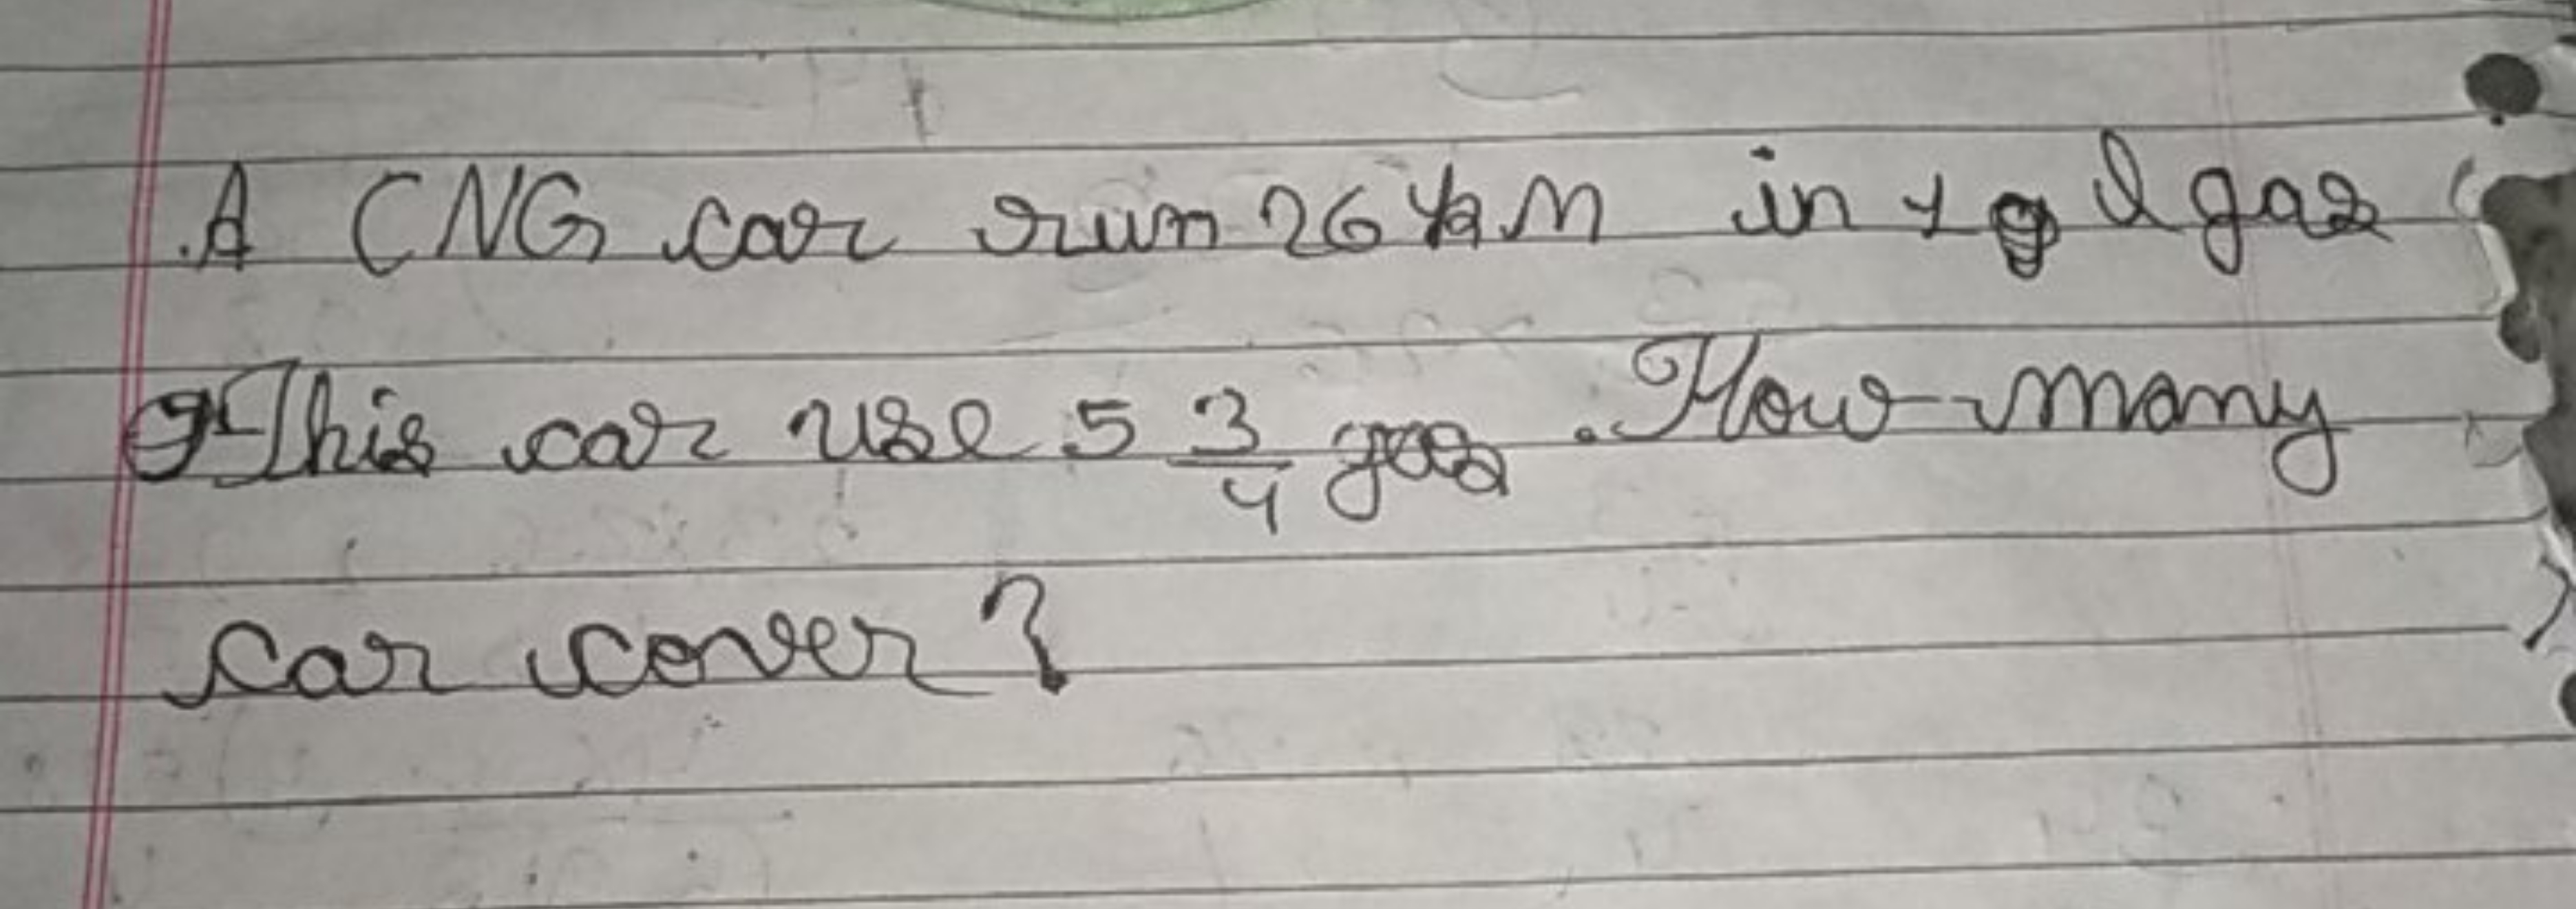 .A CNG car run 26 1/2 M in 1 l gas
This car use 5 3/4 gas . How many
car cover?